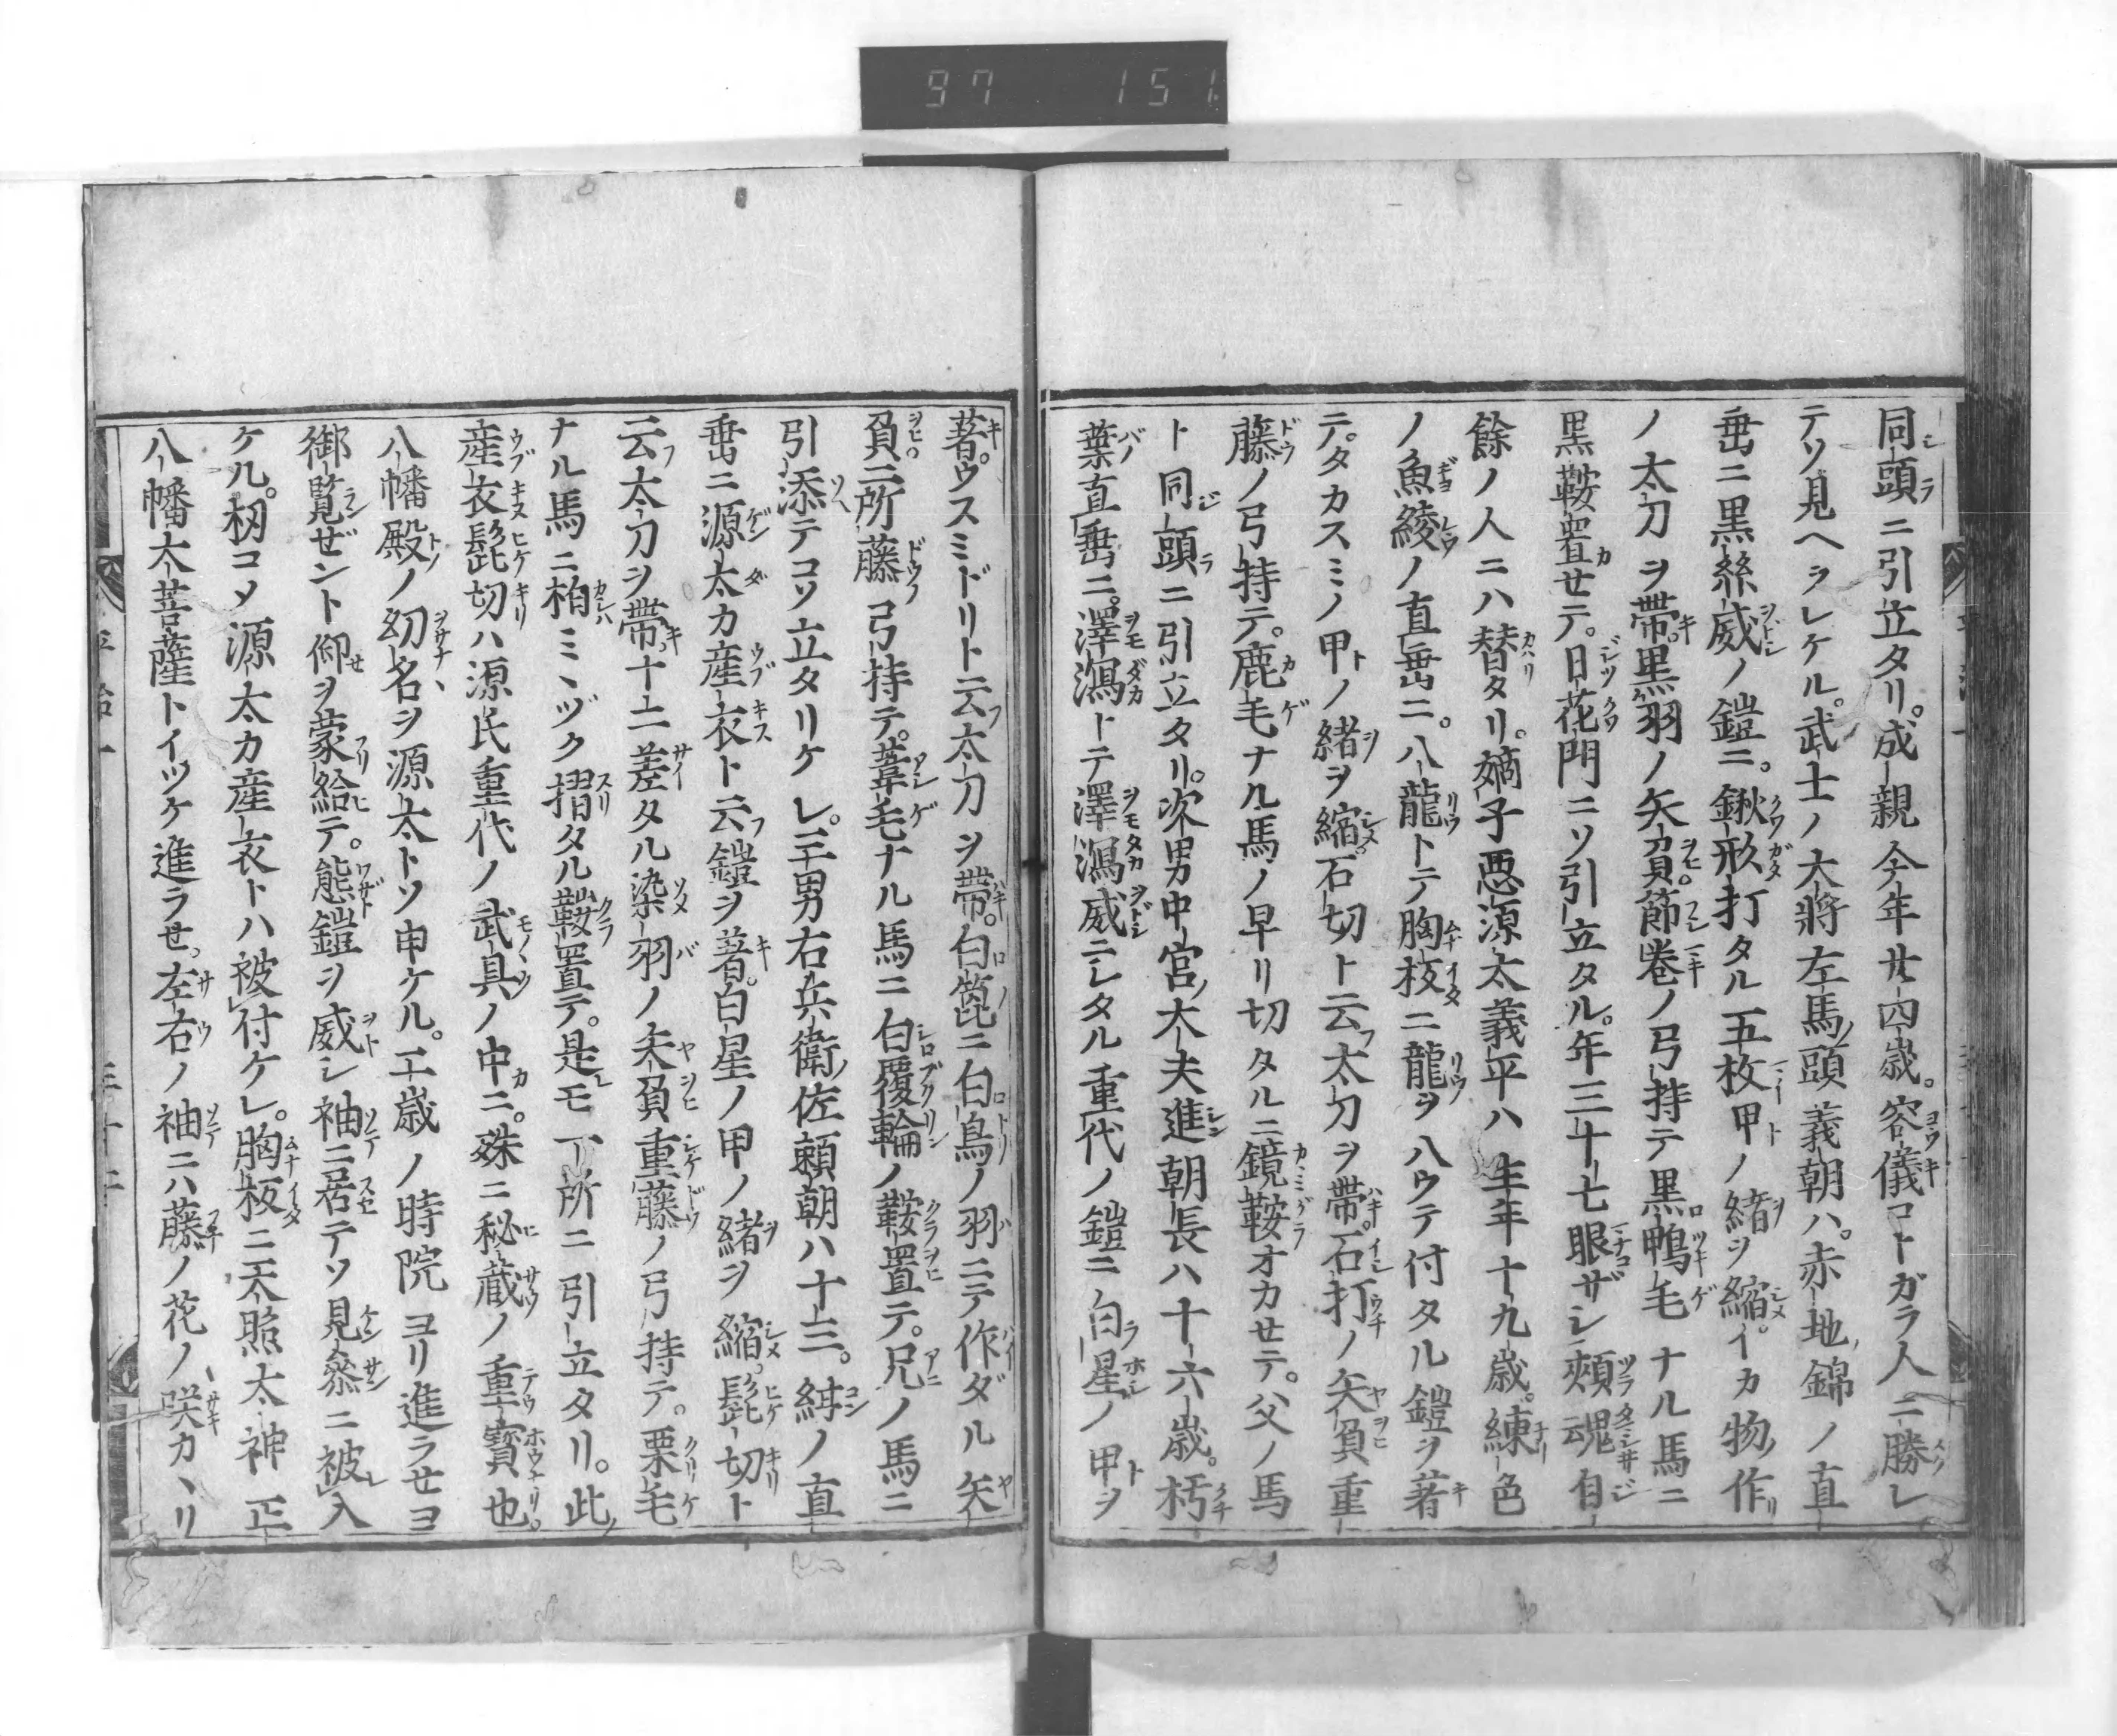 97 151
同頭ニ引立タリ。成親今年廿四歳。容儀コトガラ人ニ勝レ
テソ見ヘラレケル。武士ノ大將左馬ノ頭義朝ハ。赤地ノ錦ノ直
垂ニ黒絲威ノ鎧ニ。鍬形打タル五枚甲ノ緒ヲ縮。イカ物ノ作リ
ノ太刀ヲ帶。黒羽ノ矢負。節巻ノ弓持テ黒鴨毛ナル馬ニ
黒鞍置セテ。日花門ニソ引立タル。年三十七眼ザシ頬魂自
餘ノ人ニハ替タリ。嫡子惡源太義平ハ生年十九歳。練色
ノ魚綾ノ直垂ニ。八龍トテ胸板ニ龍ヲ八ウテ付タル鎧ヲ著
テ。タカスミノ甲ノ緒ヲ縮。石切ト云太刀ヲ帶。石打ノ矢負重
藤ノ弓持テ。鹿毛ナル馬ノ早リ切タルニ鏡鞍オカセテ。父ノ馬
ト同頭ニ引立タリ。次男中宮ノ大夫進朝長ハ十六歳。朽
葉直垂ニ。澤瀉トテ澤瀉威ニシタル重代ノ鎧ニ白星ノ甲ヲ
著。ウスミドリト云太刀ヲ帶。白箆ニ白鳥ノ羽ニテ作ダル矢
負。二所藤弓持テ。葦毛ナル馬ニ白覆輪ノ鞍置テ。兄ノ馬ニ
引添テコソ立タリケレ。三男右兵衛ノ佐頼朝ハ十三。縡ノ直
垂ニ源太カ産衣ト云鎧ヲ著。白星ノ甲ノ緒ヲ縮。髭切ト
云太刀ヲ帶。十二差タル染羽ノ矢負重藤ノ弓持テ。栗毛
ナル馬ニ栢ミヽヅク摺タル鞍置テ。是モ一所ニ引立タリ。此ノ
産衣髭切ハ源氏重代ノ武具ノ中ニ。殊ニ秘蔵ノ重寳也。
八幡殿ノ幼名ヲ源太トソ申ケル。二歳ノ時院ヨリ進ラセヨ
御覧ぜント仰ヲ蒙給テ。態鎧ヲ威シ袖ニ居テソ見參ニ被レ入
ケル。扨コソ源太カ産衣トハ被付ケレ。胸板ニ天照太神正
八幡大菩薩トイツケ進ラせ。左右ノ袖ニハ藤ノ花ノ咲カヽリ